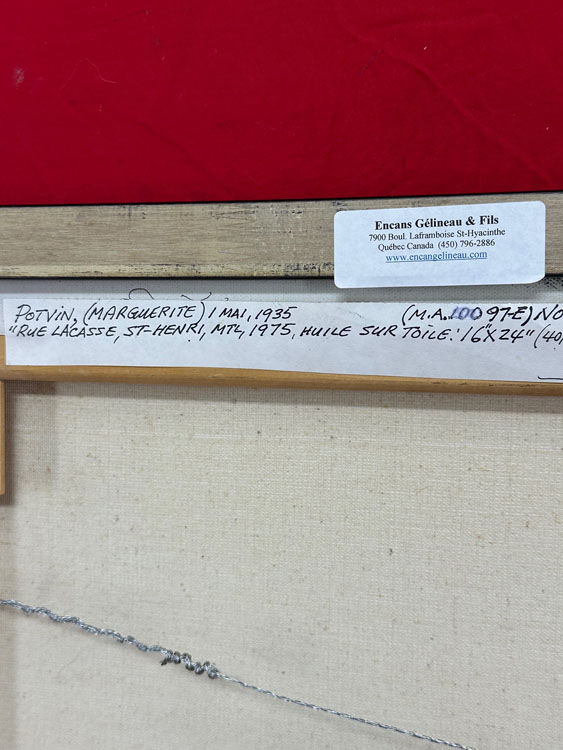 Encans Gélineau & Fils
7900 Boul. Laframboise St-Hyacinthe
Québec Canada (450) 796-2886
www.encangelineau.com
POTVIN, (MARGUERITE) 1 MAI, 1935 (M.A. 10097-E) No
"RUE LACASSE, ST-HENRI, MTL, 1975, HUILE SUR TOILE: 16"X24" (40,